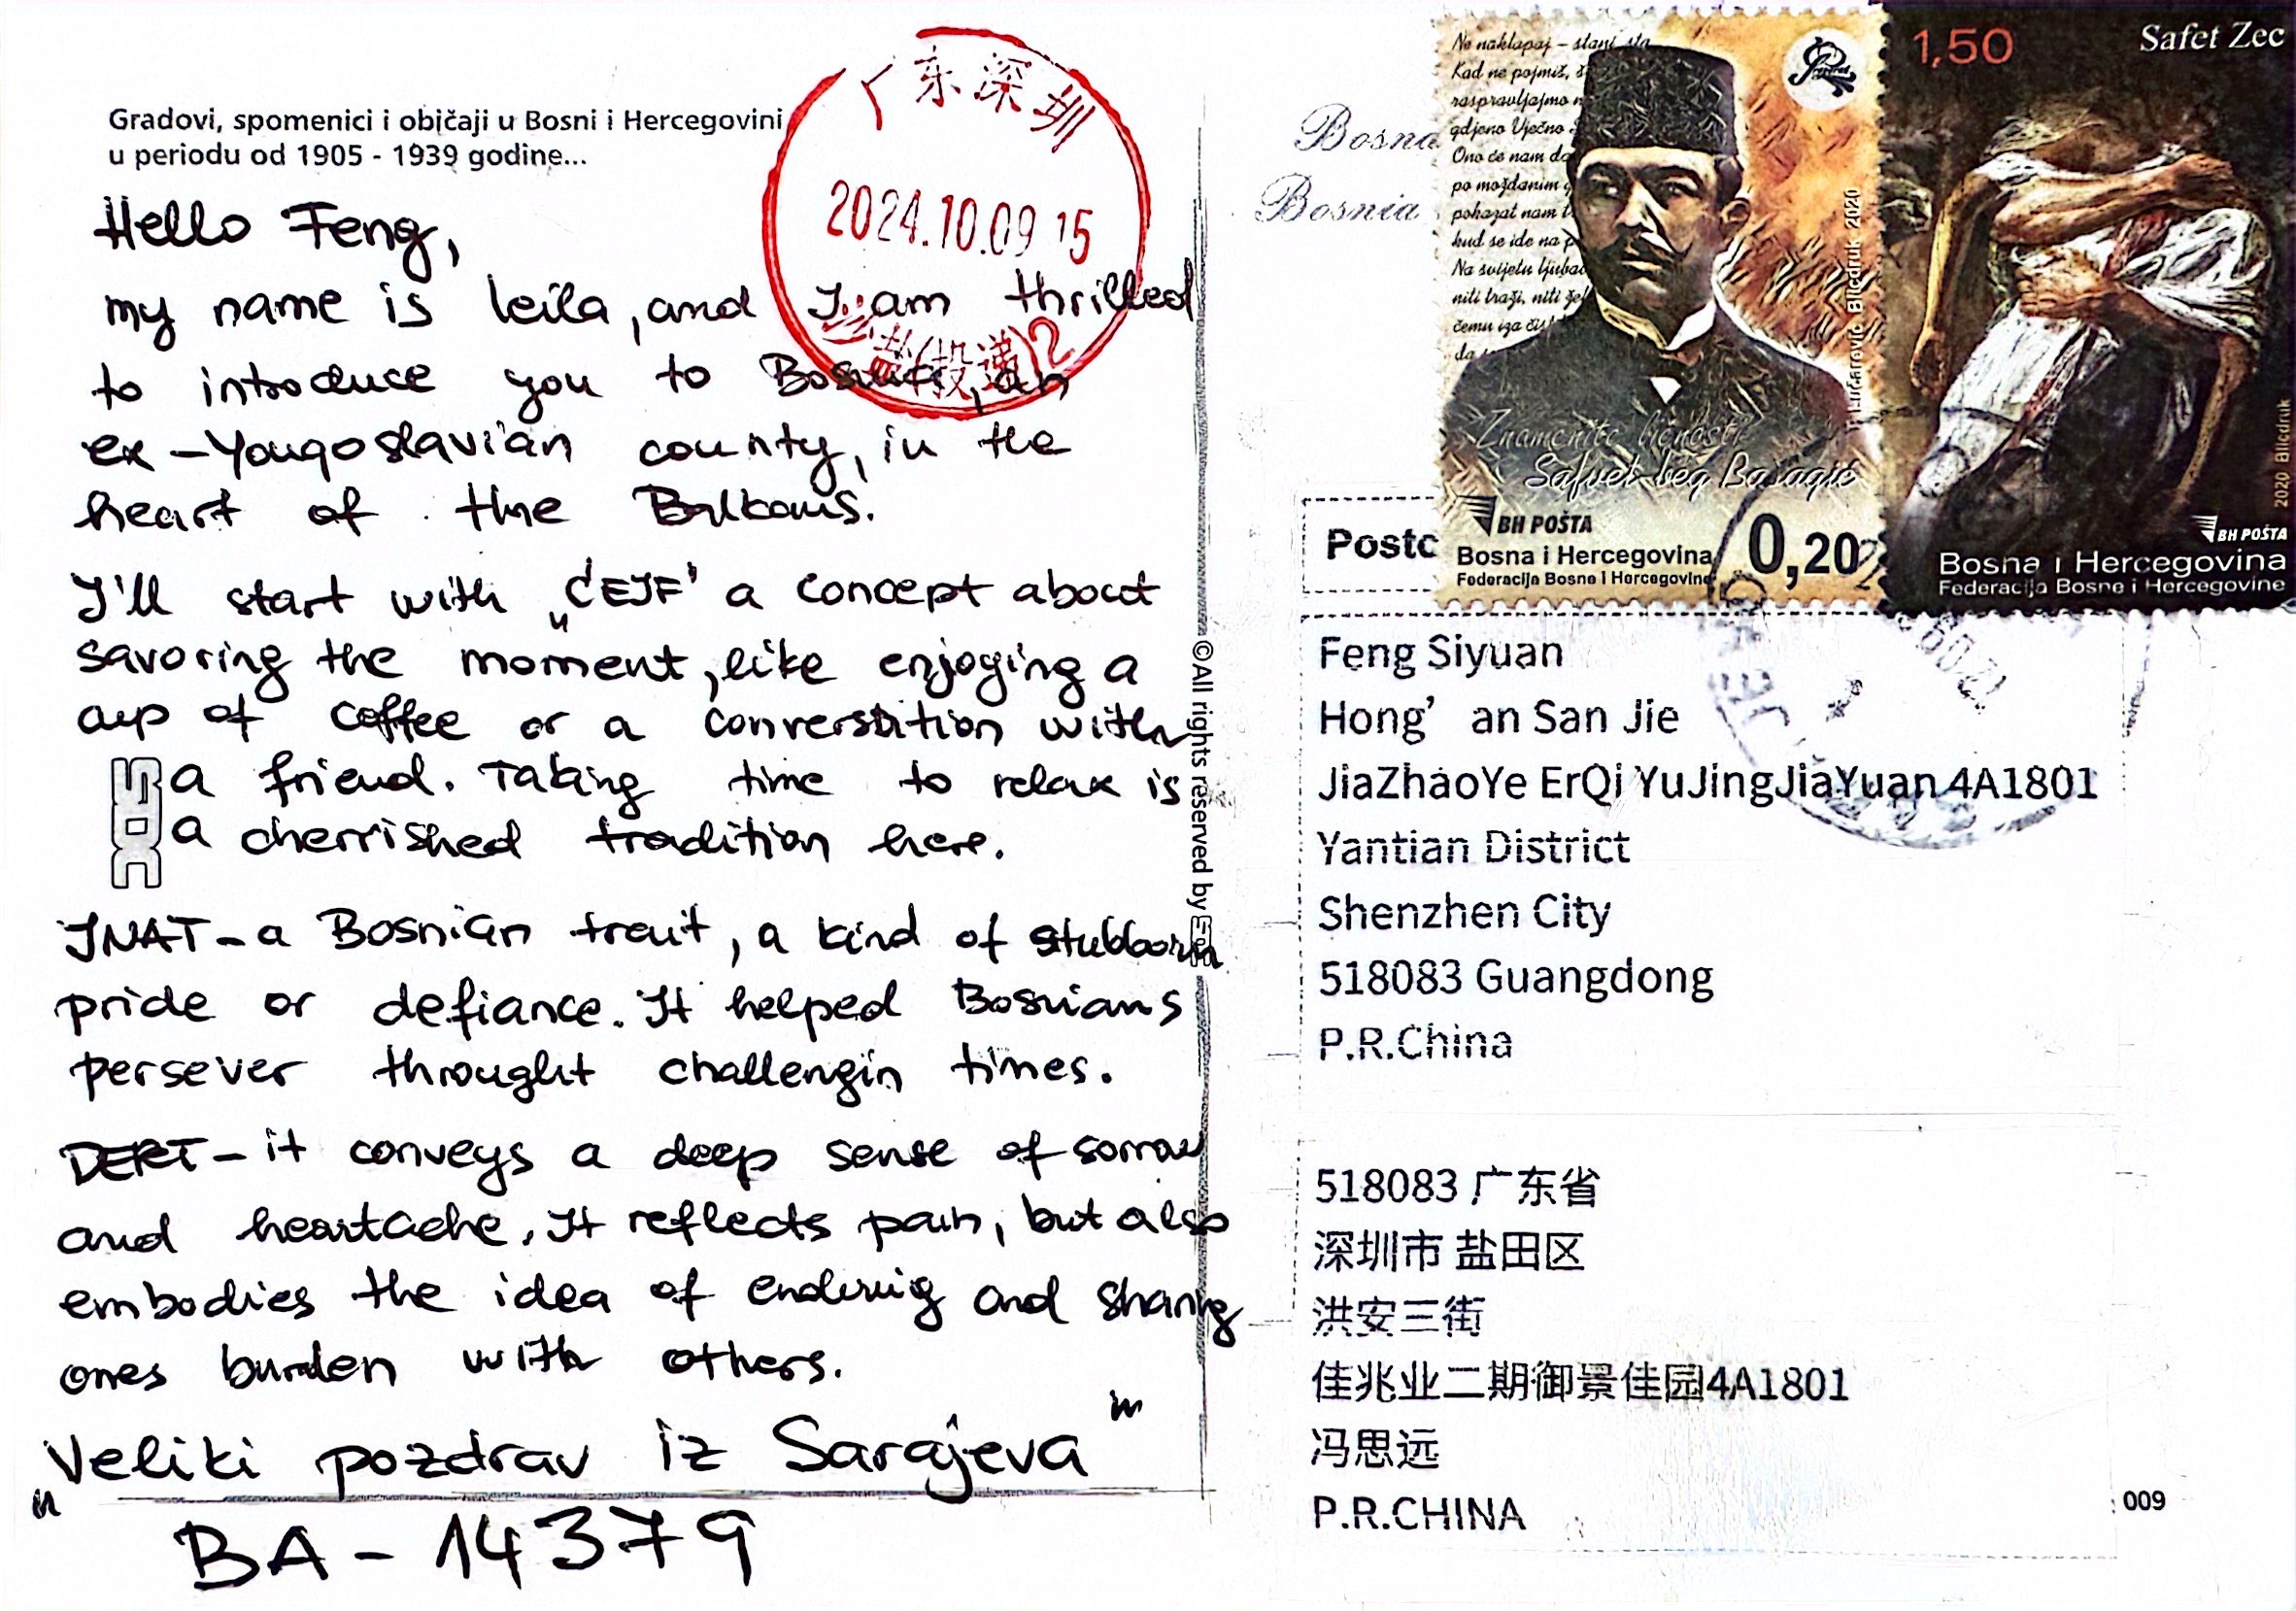 Gradovi, spomenici i običaji u Bosni i Hercegovini
u periodu od 1905 - 1939 godine...
Hello Feng,
my name is leila, and I am thrilled
to introduce you to Bosnia, an
ex-Yougoslavian county, in the
heart of the Balkans.
I'll start with „ĆEJF" a concept about
savoring the moment, like enjoying a
cup of coffee or a conversation with
a friend. Taking time to relax is
a cherrished tradition here.
INAT - a Bosnian trait, a kind of stubborn
pride or defiance. It helped Bosnians
persever throught challengin times.
DERT - it conveys a deep sense of sorrow
and heartache. It reflects pain, but also
embodies the idea of enduring and sharing
ones burden with others.
"Veliki pozdrav iz Sarajeva"
BA - 14379
广东深圳
2024.10.09 15
©All rights reserved by
Bosna
Bosnia
Postc
Ne naklapaj – stani, sta
Kad ne pojmiš, š
raspravljajmo n
gdjeno Vječno
Ono će nam da
po moždanim
pokazat nam t
kud se ide na p
Na svijetu ljubav
niti traži, niti žel
čemu iza čis
da
Znamenite ličnosti
Safvet beg Bašagić
BH POŠTA
Bosna i Hercegovina
Federacija Bosne i Hercegovine
0,20
Blicdruk 2020
1,50
Safet Zec
BH POŠTA
Bosna i Hercegovina
Federacija Bosne i Hercegovine
2020 Blicdruk
Feng Siyuan
Hong' an San Jie
JiaZhaoYe ErQi YuJingJiaYuan 4A1801
Yantian District
Shenzhen City
518083 Guangdong
P.R.China
518083 广东省
深圳市 盐田区
洪安三街
佳兆业二期御景佳园4A1801
冯思远
P.R.CHINA
009